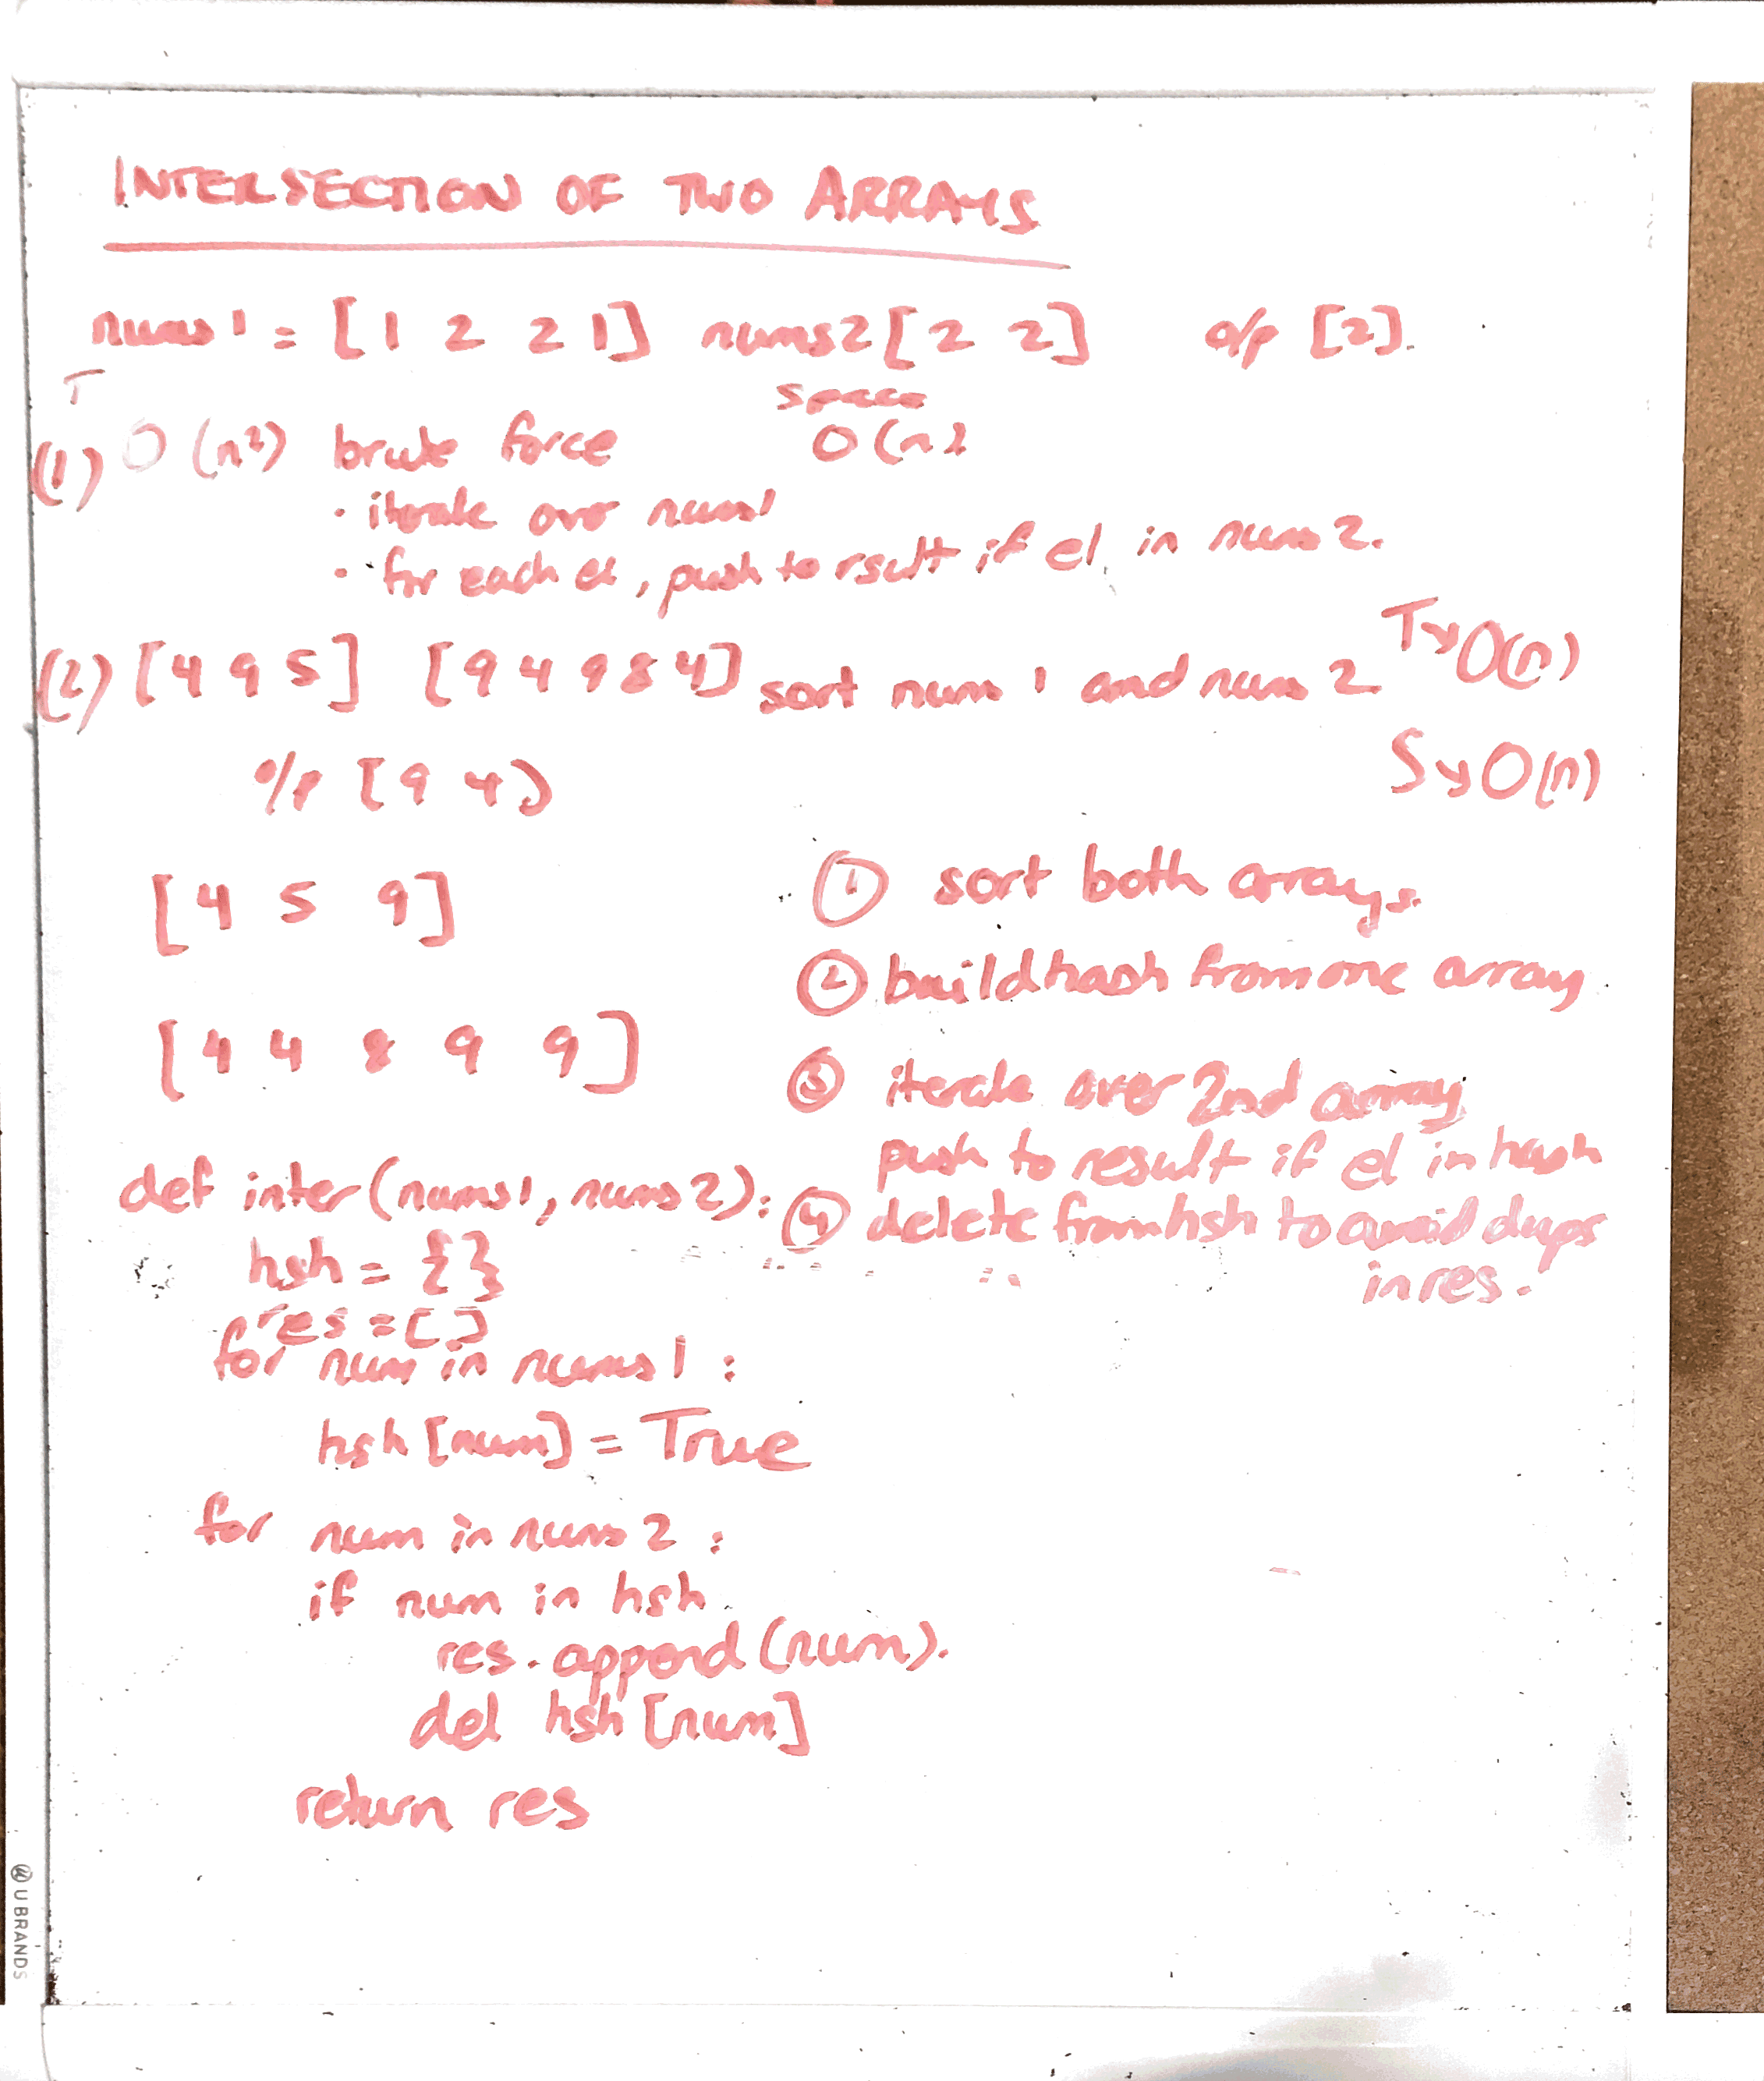 INTERSECTION OF TWO ARRAYS
nums1 = [1 2 2 1] nums2 [2 2] o/p [2].
T
space
(1) O(n²) brute force O(n)
· iterate over nums1
· for each el, push to rsult if el in nums 2.
(2) [4 9 5] [9 4 9 8 4] sort nums 1 and nums 2 T → O(n)
o/p [9 4] S → O(n)
[4 5 9]
[4 4 8 9 9]
① sort both arrays.
② build hash from one array.
③ iterate over 2nd array
push to result if el in hash
④ delete from hsh to avoid dups
in res.
def inter(nums1, nums2):
hsh = {}
res = []
for num in nums1 :
hsh [num] = True
for num in nums 2 :
if num in hsh
res.append(num).
del hsh [num]
return res
U BRANDS